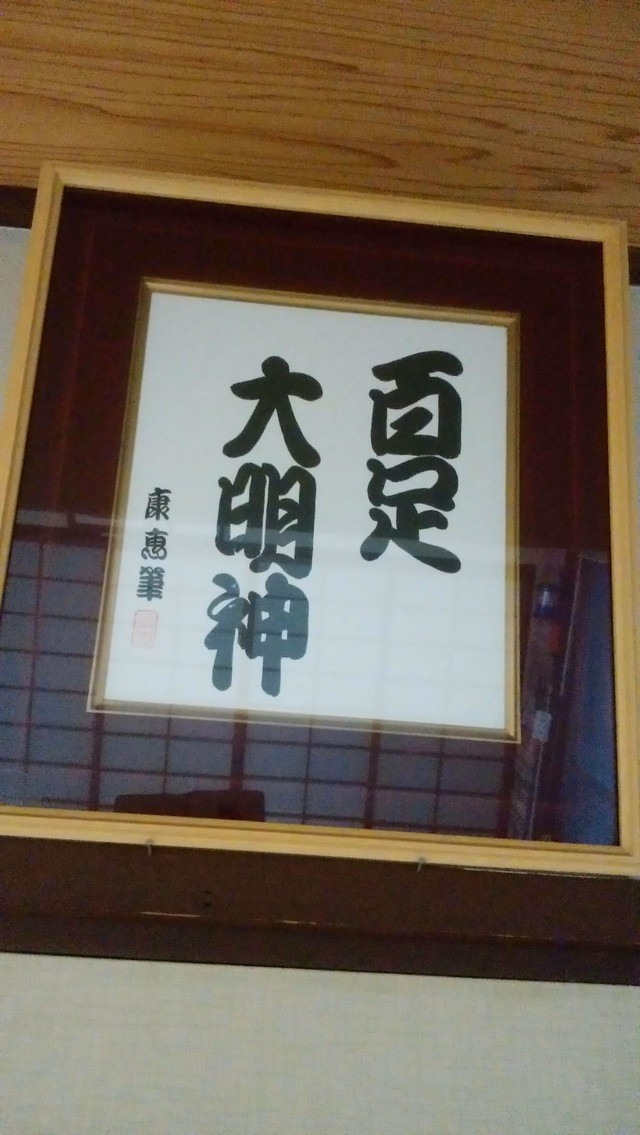 百足
大明神
康恵筆